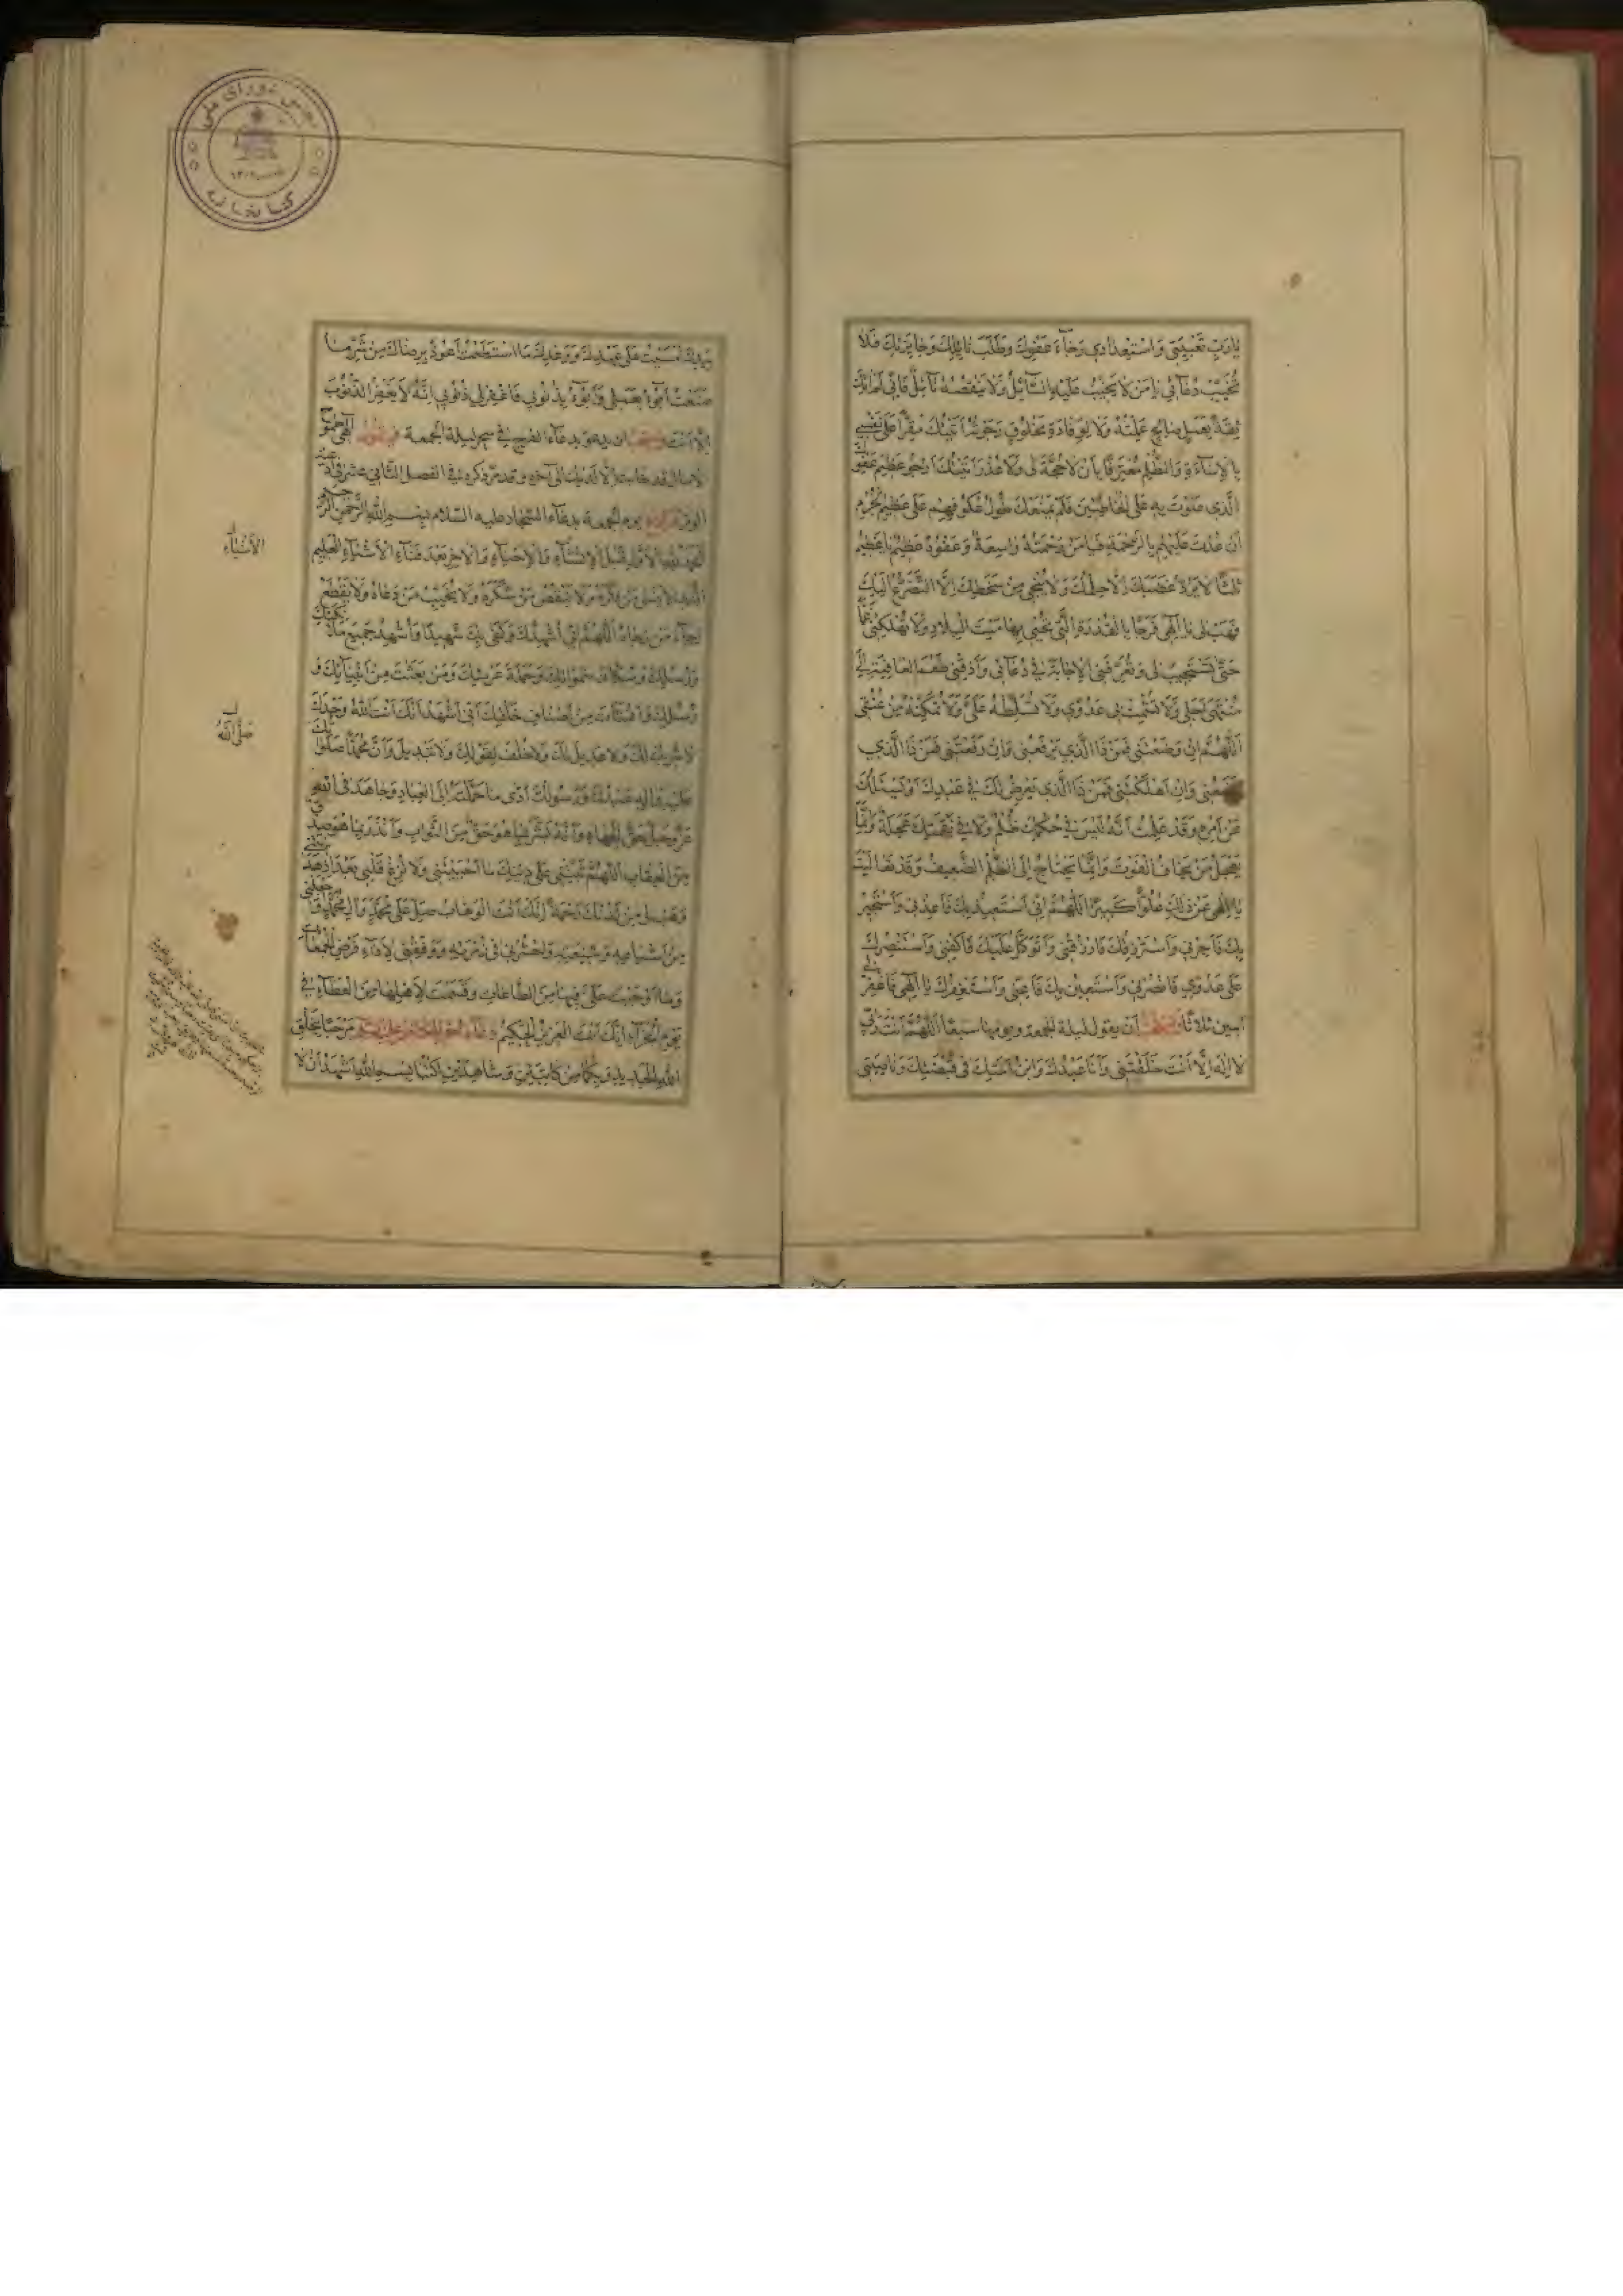 يا رَبِّ تَعْبِيَتي وَاسْتِعْدادي رَجآءَ عَفْوِكَ وَطَلَبَ نائِلِكَ وَجائِزَتِكَ فَلا
تُخَيِّبْ دُعآئي يا مَنْ لا يَخيبُ عَلَيْهِ السّآئِلُ وَلا يَنْقُصُهُ نآئِلٌ فَاِنّي لَمْ اتِكَ
ثِقَةً بِعَمَلٍ صالِحٍ عَمِلْتُهُ وَلا لِوَفادَةِ مَخْلُوقٍ رَجَوْتُهُ اَتَيْتُكَ مُقِرًّا عَلى نَفْسي
بِالْاِسآءَةِ وَالظُّلْمِ مُعْتَرِفًا بِاَنْ لا حُجَّةَ لي وَلا عُذْرَ اَتَيْتُكَ اَرْجُو عَظيمَ عَفْوِكَ
الَّذي عَلَوْتَ بِهِ عَلَى الْخاطِئينَ فَلَمْ يَمْنَعْكَ طُولُ عُكُوفِهِمْ عَلى عَظيمِ الْجُرْمِ
اَنْ عُدْتَ عَلَيْهِمْ بِالرَّحْمَةِ فَيا مَنْ رَحْمَتُهُ واسِعَةٌ وَعَفْوُهُ عَظيمٌ يا عَظيمُ
ثلثًا لا يَرُدُّ غَضَبَكَ اِلّا حِلْمُكَ وَلا يُنْجي مِنْ سَخَطِكَ اِلَّا التَّضَرُّعُ اِلَيْكَ
فَهَبْ لي يا اِلهي فَرَجًا بِالْقُدْرَةِ الَّتي تُحْيي بِها مَيْتَ الْبِلادِ وَلا تُهْلِكْني غَمًّا
حَتّى تَسْتَجيبَ لي وَتُعَرِّفَنِي الْاِجابَةَ في دُعآئي وَاَذِقْني طَعْمَ الْعافِيَةِ اِلى
مُنْتَهى اَجَلي وَلا تُشْمِتْ بي عَدُوّي وَلا تُسَلِّطْهُ عَلَيَّ وَلا تُمَكِّنْهُ مِنْ عُنُقي
اَللّهُمَّ اِنْ وَضَعْتَني فَمَنْ ذَا الَّذي يَرْفَعُني وَاِنْ رَفَعْتَني فَمَنْ ذَا الَّذي
يَضَعُني وَاِنْ اَهْلَكْتَني فَمَنْ ذَا الَّذي يَعْرِضُ لَكَ في عَبْدِكَ اَوْ يَسْئَلُكَ
عَنْ اَمْرِهِ وَقَدْ عَلِمْتُ اَنَّهُ لَيْسَ في حُكْمِكَ ظُلْمٌ وَلا في نَقِمَتِكَ عَجَلَةٌ وَاِنَّما
يَعْجَلُ مَنْ يَخافُ الْفَوْتَ وَاِنَّما يَحْتاجُ اِلَى الظُّلْمِ الضَّعيفُ وَقَدْ تَعالَيْتَ
يا اِلهي عَنْ ذلِكَ عُلُوًّا كَبيرًا اَللّهُمَّ اِنّي اَسْتَعيذُ بِكَ فَاَعِذْني وَاَسْتَجيرُ
بِكَ فَاَجِرْني وَاَسْتَرْزِقُكَ فَارْزُقْني وَاَتَوَكَّلُ عَلَيْكَ فَاكْفِني وَاَسْتَنْصِرُكَ
عَلى عَدُوّي فَانْصُرْني وَاَسْتَعينُ بِكَ فَاَعِنّي وَاَسْتَغْفِرُكَ يا اِلهي فَاغْفِرْ لي
امين ثلاثًا اَنْ يقول ليلة الجمعة ويومها سبعًا اَللّهُمَّ اَنْتَ رَبّي
لا اِلهَ اِلّا اَنْتَ خَلَقْتَني وَاَنَا عَبْدُكَ وَابْنُ اَمَتِكَ في قَبْضَتِكَ وَناصِيَتي
بِيَدِكَ اَمْسَيْتُ عَلى عَهْدِكَ وَوَعْدِكَ مَا اسْتَطَعْتُ اَعُوذُ بِرِضاكَ مِنْ شَرِّ ما
صَنَعْتُ اَبُوءُ بِعَمَلي وَاَبُوءُ بِذُنُوبي فَاغْفِرْ لي ذُنُوبي اِنَّهُ لا يَغْفِرُ الذُّنُوبَ
اِلّا اَنْتَ بدعاء الفرج في سحر ليلة الجمعة الهي طموح
الامال قد خابت الا لديك الى آخره وقد مر ذكره في الفصل الثاني عشر في ادعية
يوم الجمعة بدعآء السجاد عليه السلام بِسْمِ اللّهِ الرَّحْمنِ الرَّحيمِ
اَلْحَمْدُ لِلّهِ الْاَوَّلِ قَبْلَ الْاِنْشآءِ وَالْاِحْيآءِ وَالْاخِرِ بَعْدَ فَنآءِ الْاَشْيآءِ الْعَليمِ
الَّذي لا يَنْسى مَنْ ذَكَرَهُ وَلا يَنْقُصُ مَنْ شَكَرَهُ وَلا يُخَيِّبُ مَنْ دَعاهُ وَلا يَقْطَعُ
رَجآءَ مَنْ رَجاهُ اَللّهُمَّ اِنّي اُشْهِدُكَ وَكَفى بِكَ شَهيدًا وَاُشْهِدُ جَميعَ مَلائِكَتِكَ
وَرُسُلِكَ وَسُكّانَ سَمواتِكَ وَحَمَلَةَ عَرْشِكَ وَمَنْ بَعَثْتَ مِنْ اَنْبِيآئِكَ وَ
رُسُلِكَ وَاَنْشَأْتَ مِنْ اَصْنافِ خَلْقِكَ اَنّي اَشْهَدُ اَنَّكَ اَنْتَ اللّهُ وَحْدَكَ
لا شَريكَ لَكَ وَلا عَديلَ لَكَ وَلا خُلْفَ لِقَوْلِكَ وَلا تَبْديلَ وَاَنَّ مُحَمَّدًا صَلَواتُكَ
عَلَيْهِ وَالِهِ عَبْدُكَ وَرَسُولُكَ اَدّى ما حَمَّلْتَهُ اِلَى الْعِبادِ وَجاهَدَ فِي اللّهِ
عَزَّ وَجَلَّ حَقَّ الْجِهادِ وَاَنَّهُ بَشَّرَ بِما هُوَ حَقٌّ مِنَ الثَّوابِ وَاَنْذَرَ بِما هُوَ صِدْقٌ
مِنَ الْعِقابِ اَللّهُمَّ ثَبِّتْني عَلى دينِكَ ما اَحْيَيْتَني وَلا تُزِغْ قَلْبي بَعْدَ اِذْ هَدَيْتَني
وَهَبْ لي مِنْ لَدُنْكَ رَحْمَةً اِنَّكَ اَنْتَ الْوَهّابُ صَلِّ عَلى مُحَمَّدٍ وَالِ مُحَمَّدٍ وَاجْعَلْني
مِنْ اَتْباعِهِ وَشيعَتِهِ وَاحْشُرْني في زُمْرَتِهِ وَوَفِّقْني لِاَدآءِ فَرْضِ الْجُمُعاتِ
وَما اَوْجَبْتَ عَلَيَّ فيها مِنَ الطّاعاتِ وَقَسَمْتَ لِاَهْلِها مِنَ الْعَطآءِ في
يَوْمِ الْجَزآءِ اِنَّكَ اَنْتَ الْعَزيزُ الْحَكيمُ مَرْحَبًا بِخَلْقِ
اللّهِ الْجَديدِ وَبِكُما مِنْ كاتِبَيْنِ وَشاهِدَيْنِ اُكْتُبا بِسْمِ اللّهِ اَشْهَدُ اَنْ لا
الاَشْيآءِ
صَلَّى اللّهُ
شورای ملی
کتابخانه